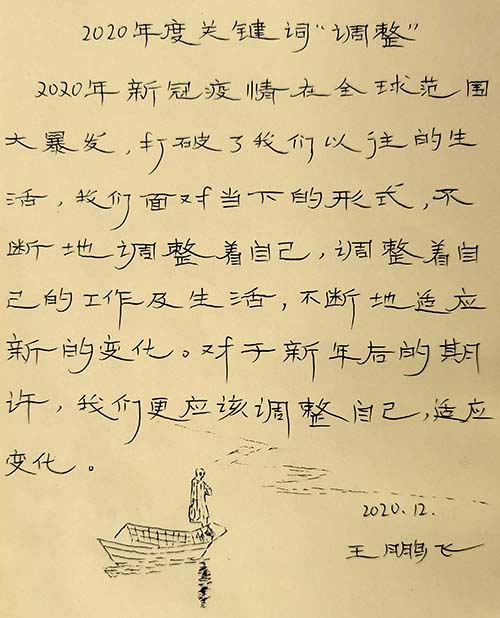 2020年度关键词“调整”
2020年新冠疫情在全球范围
大暴发，打破了我们以往的生
活，我们面对当下的形式，不
断地调整着自己，调整着自
己的工作及生活，不断地适应
新的变化。对于新年后的期
许，我们更应该调整自己，适应
变化。
2020.12.
王鹏飞